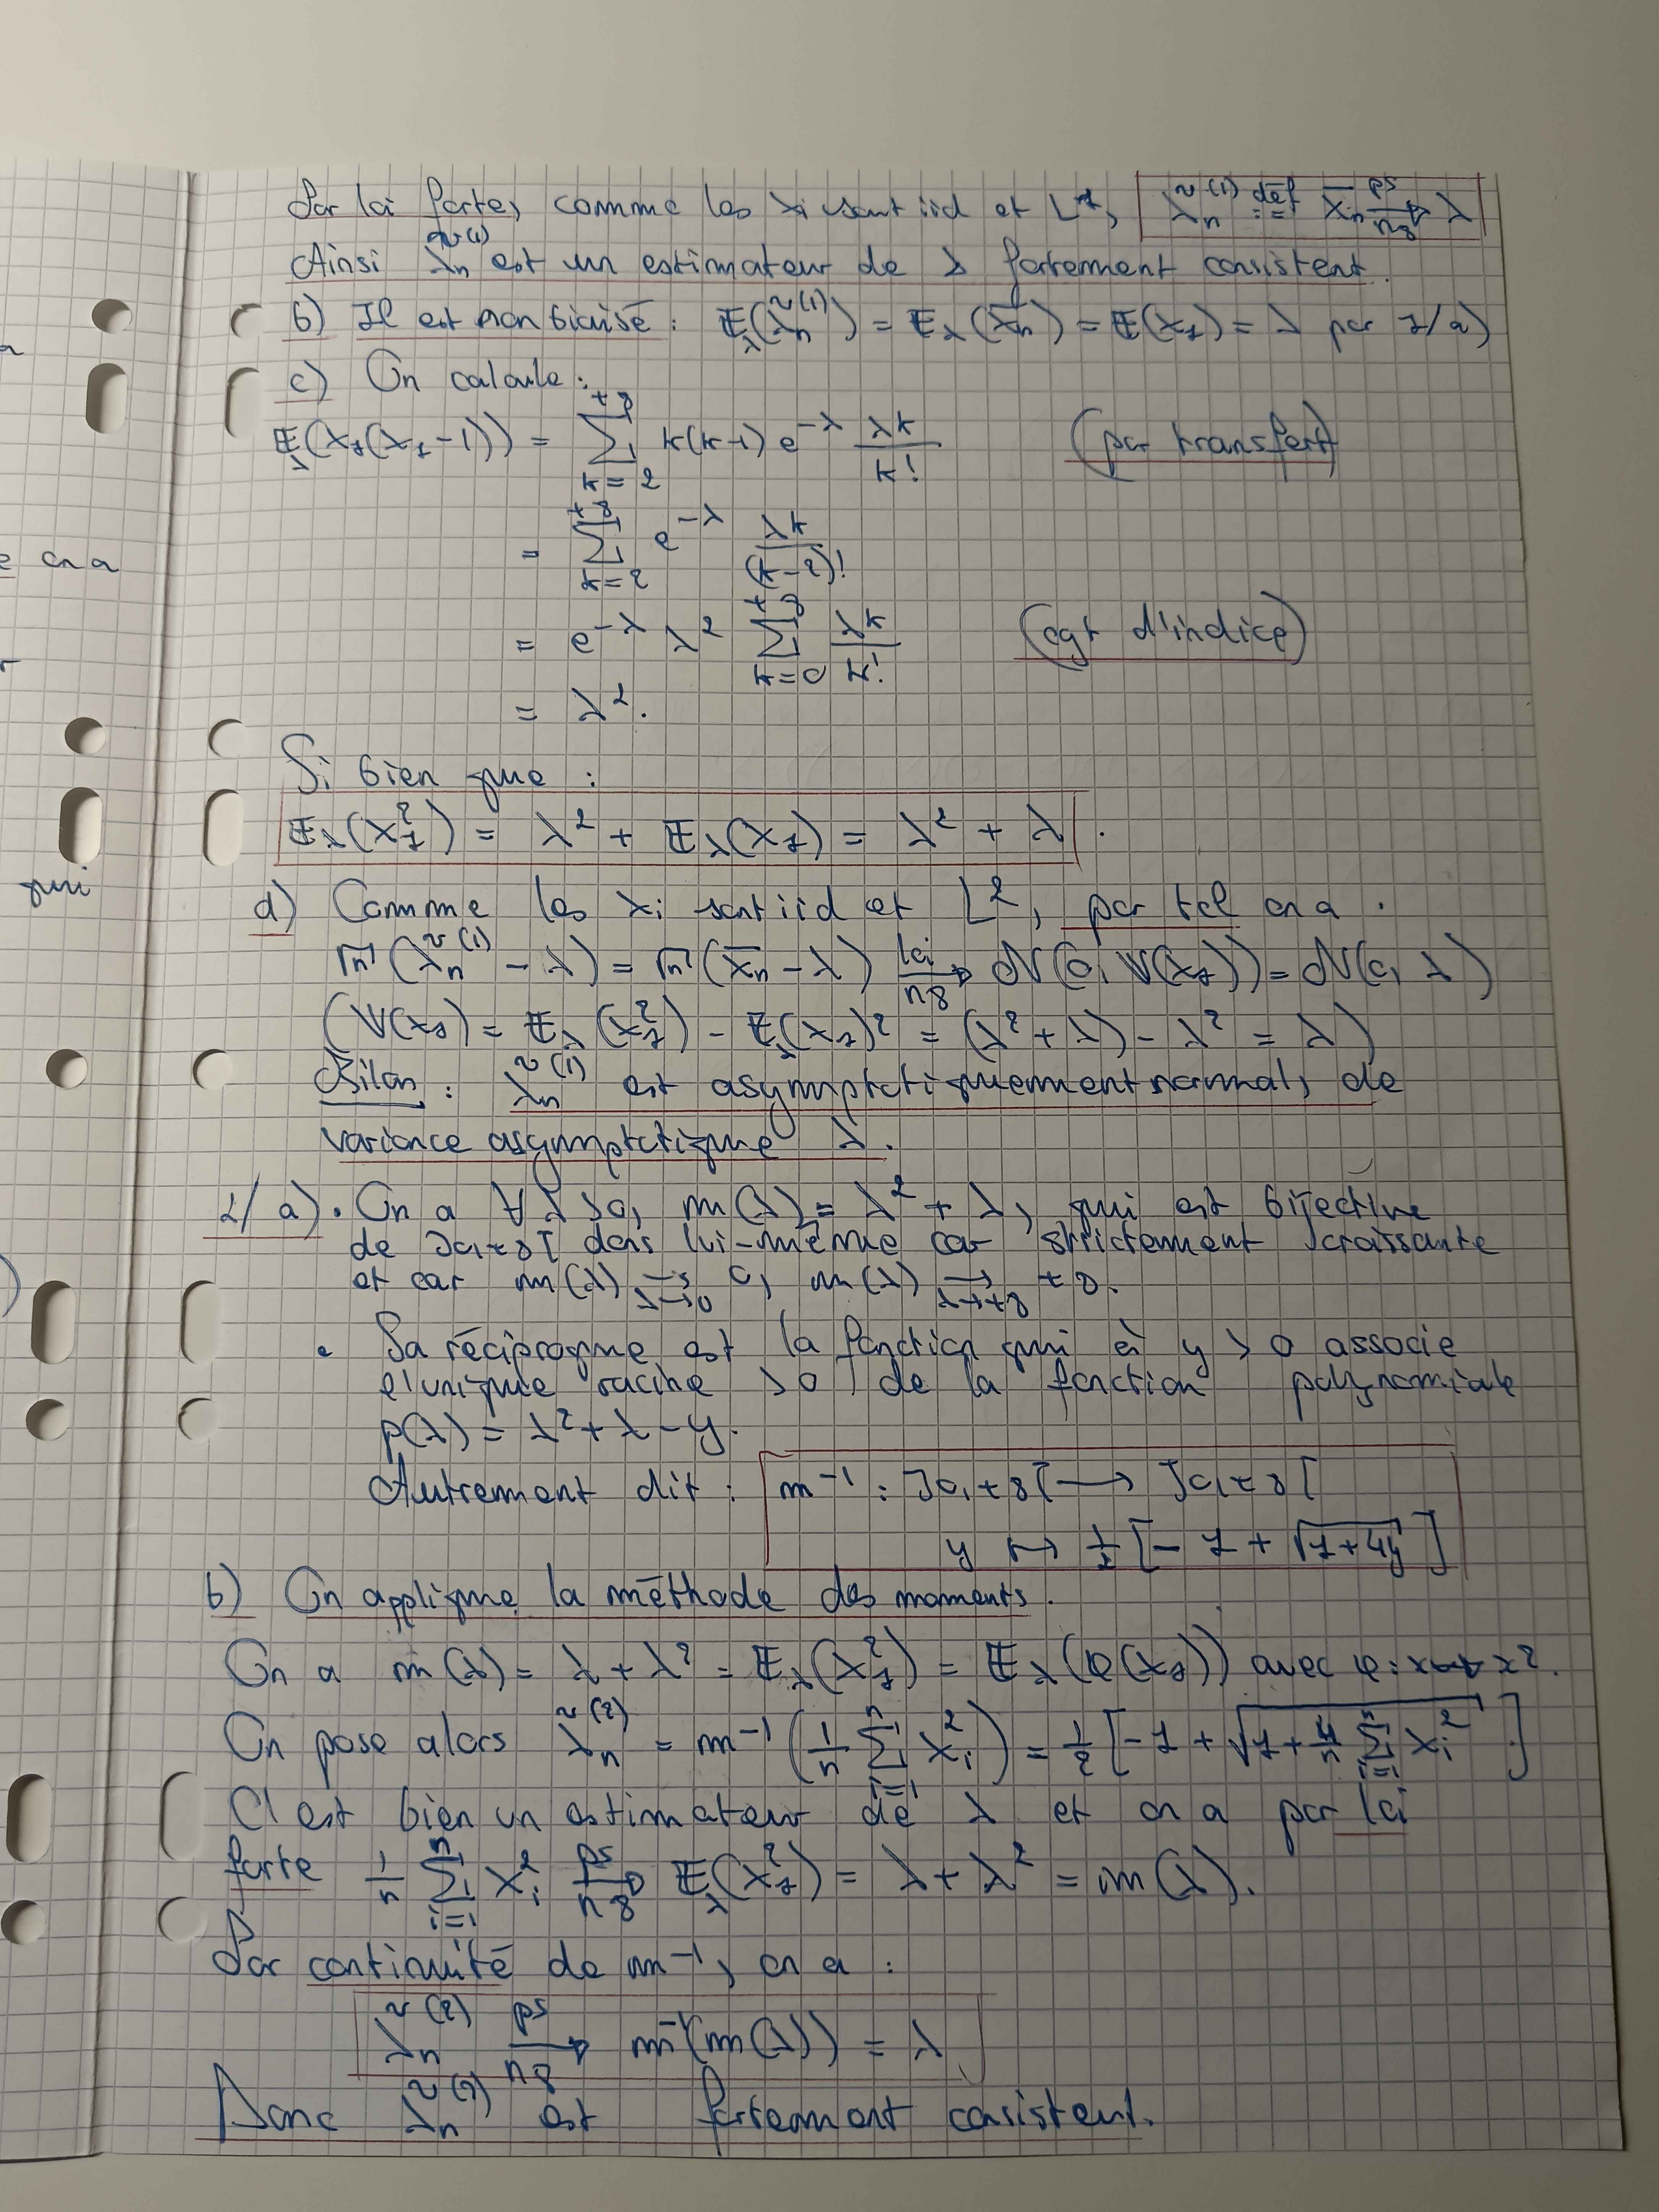 Par loi forte, comme les Xi sont iid et L¹, λ̃n^(1) :=^déf X̄n →^ps_n∞ λ
Ainsi λ̃n^(1) est un estimateur de λ fortement consistent.
b) Il est non biaisé : 𝔼λ(λ̃n^(1)) = 𝔼λ(X̄n) = 𝔼(X1) = λ par 1/a)
c) On calcule :
𝔼λ(X1(X1-1)) = ∑_{k=2}^{+∞} k(k-1) e^{-λ} λ^k / k! (par transfert)
= ∑_{k=2}^{+∞} e^{-λ} λ^k / (k-2)!
= e^{-λ} λ² ∑_{k=0}^{+∞} λ^k / k! (cgt d'indice)
= λ².
Si bien que :
𝔼λ(X1²) = λ² + 𝔼λ(X1) = λ² + λ.
d) Comme les Xi sont iid et L², par tcl on a :
√n (λ̃n^(1) - λ) = √n (X̄n - λ) →^loi_n∞ N(0, V(X1)) = N(0, λ)
(V(X1) = 𝔼λ(X1²) - 𝔼λ(X1)² = (λ² + λ) - λ² = λ)
Bilan : λ̃n^(1) est asymptotiquement normal, de
variance asymptotique λ.
2/ a) • On a ∀ λ > 0, m(λ) = λ² + λ, qui est bijective
de ]0,+∞[ dans lui-même car strictement croissante
et car m(λ) →_{λ→0} 0, m(λ) →_{λ→+∞} +∞.
• Sa réciproque est la fonction qui à y > 0 associe
l'unique racine > 0 de la fonction polynomiale
p(λ) = λ² + λ - y.
Autrement dit : m^{-1} : ]0,+∞[ → ]0,+∞[
y ↦ ½ [-1 + √(1+4y)]
b) On applique la méthode des moments.
On a m(λ) = λ + λ² = 𝔼λ(X1²) = 𝔼λ(φ(X1)) avec φ : x ↦ x².
On pose alors λ̃n^(2) = m^{-1}(1/n ∑_{i=1}^{n} Xi²) = ½ [-1 + √(1 + 4/n ∑_{i=1}^{n} Xi²)]
C'est bien un estimateur de λ et on a par loi
forte 1/n ∑_{i=1}^{n} Xi² →^ps_n∞ 𝔼λ(X1²) = λ + λ² = m(λ).
Par continuité de m^{-1}, on a :
λ̃n^(2) →^ps_n∞ m^{-1}(m(λ)) = λ
Donc λ̃n^(2) est fortement consistent.
e on a
qui